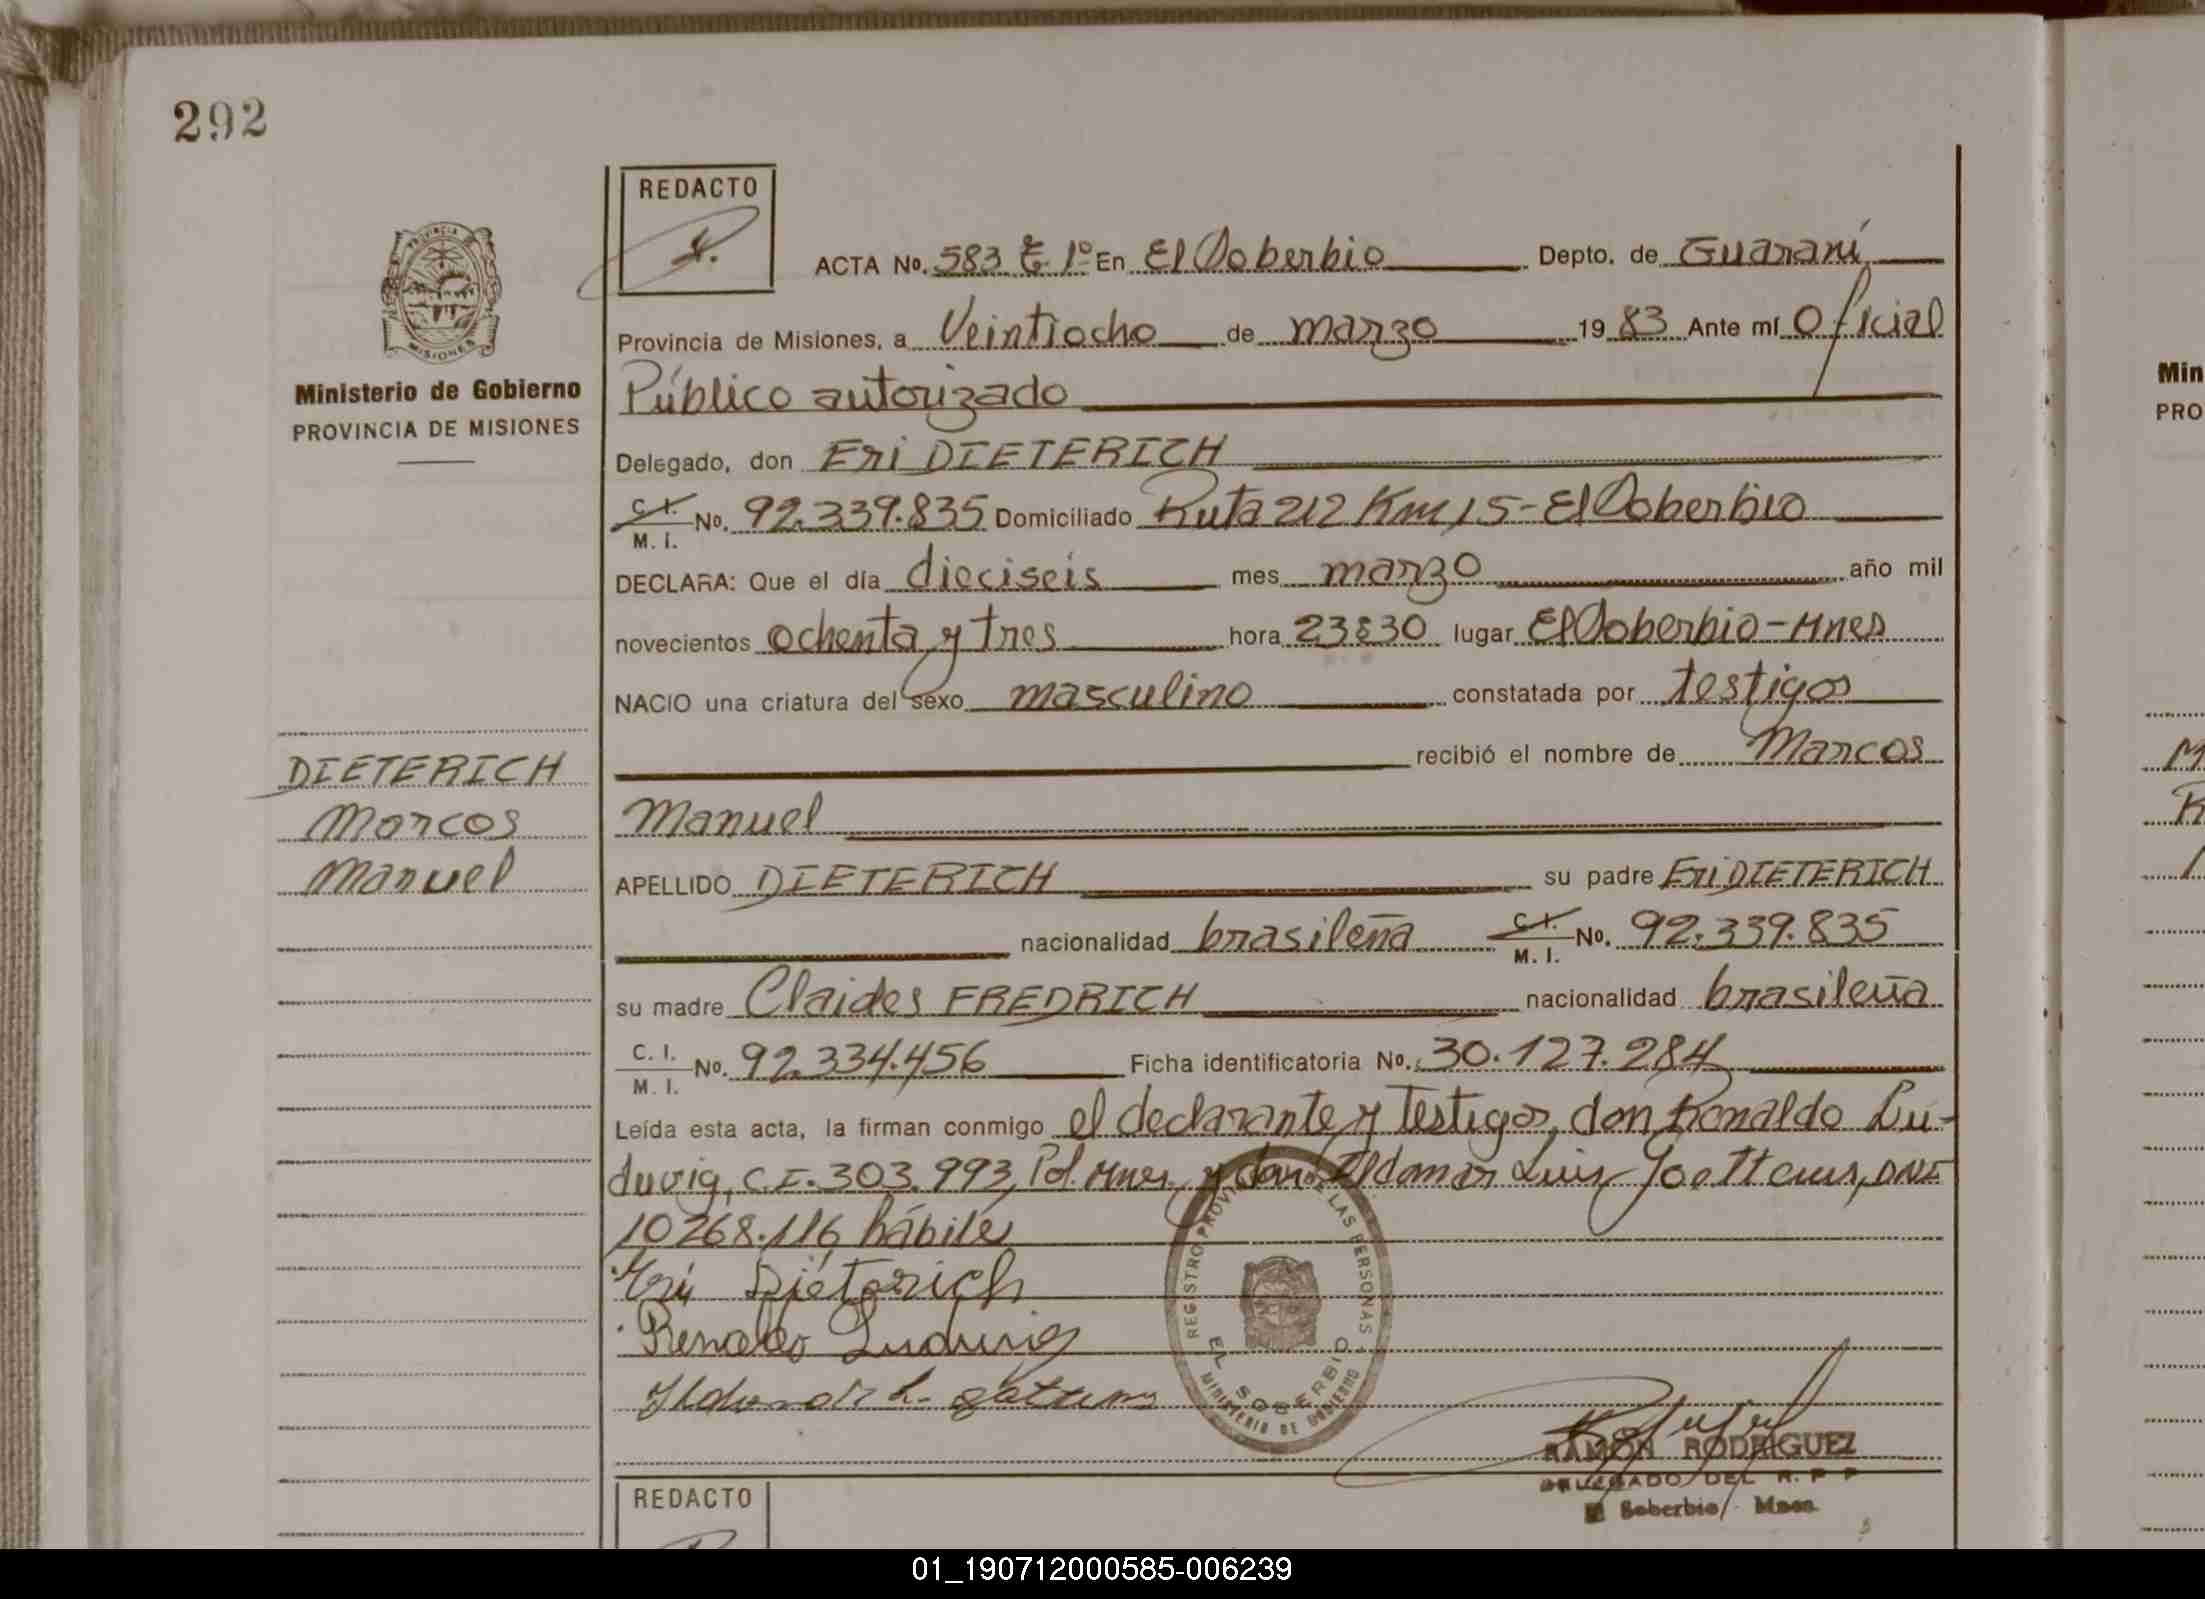 292
REDACTO
ACTA No. 583 T. 1º En El Soberbio Depto. de Guaraní
Provincia de Misiones, a Veintiocho de marzo 19 83 Ante mí Oficial
Público autorizado
Ministerio de Gobierno
PROVINCIA DE MISIONES
Delegado, don Eri DIETERICH
C. I. M. I. No. 92.339.835 Domiciliado Ruta 212 Km 15 - El Soberbio
DECLARA: Que el día dieciseis mes marzo año mil
novecientos ochenta y tres hora 23:30 lugar El Soberbio - Mnes
NACIO una criatura del sexo masculino constatada por testigos
recibió el nombre de Marcos
Manuel
DIETERICH
Marcos
Manuel
APELLIDO DIETERICH su padre Eri DIETERICH
nacionalidad brasileña C. I. M. I. No. 92.339.835
su madre Claides FREDRICH nacionalidad brasileña
C. I. M. I. No. 92.334.456 Ficha identificatoria No. 30.127.284
Leída esta acta, la firman conmigo el declarante y testigos, don Renaldo Lu-
duvig, C.I. 303.993, Pol. Mnes. y don Ildomar Luis, DNI
10268.116 hábiles
Eri Dieterich
Renaldo Ludwig
REGISTRO PROVINCIAL DE LAS PERSONAS
EL SOBERBIO
MINISTERIO DE GOBIERNO
RAMON RODRIGUEZ
DELEGADO DEL R. P. P.
El Soberbio, Mnes.
REDACTO
Min
PRO
01_190712000585-006239